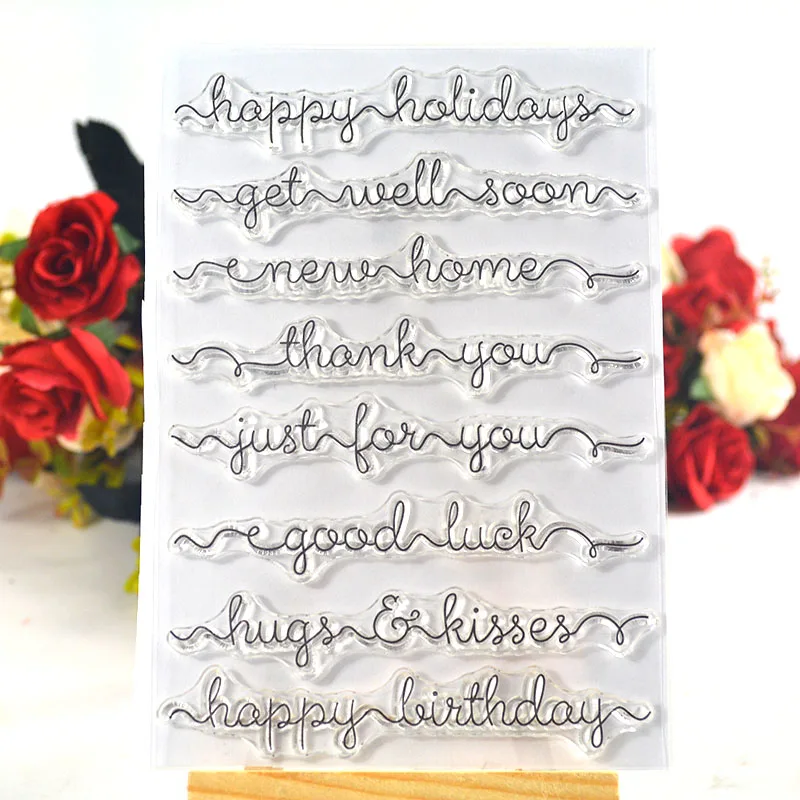 happy holidays
get well soon
new home
thank you
just for you
good luck
hugs & kisses
happy birthday